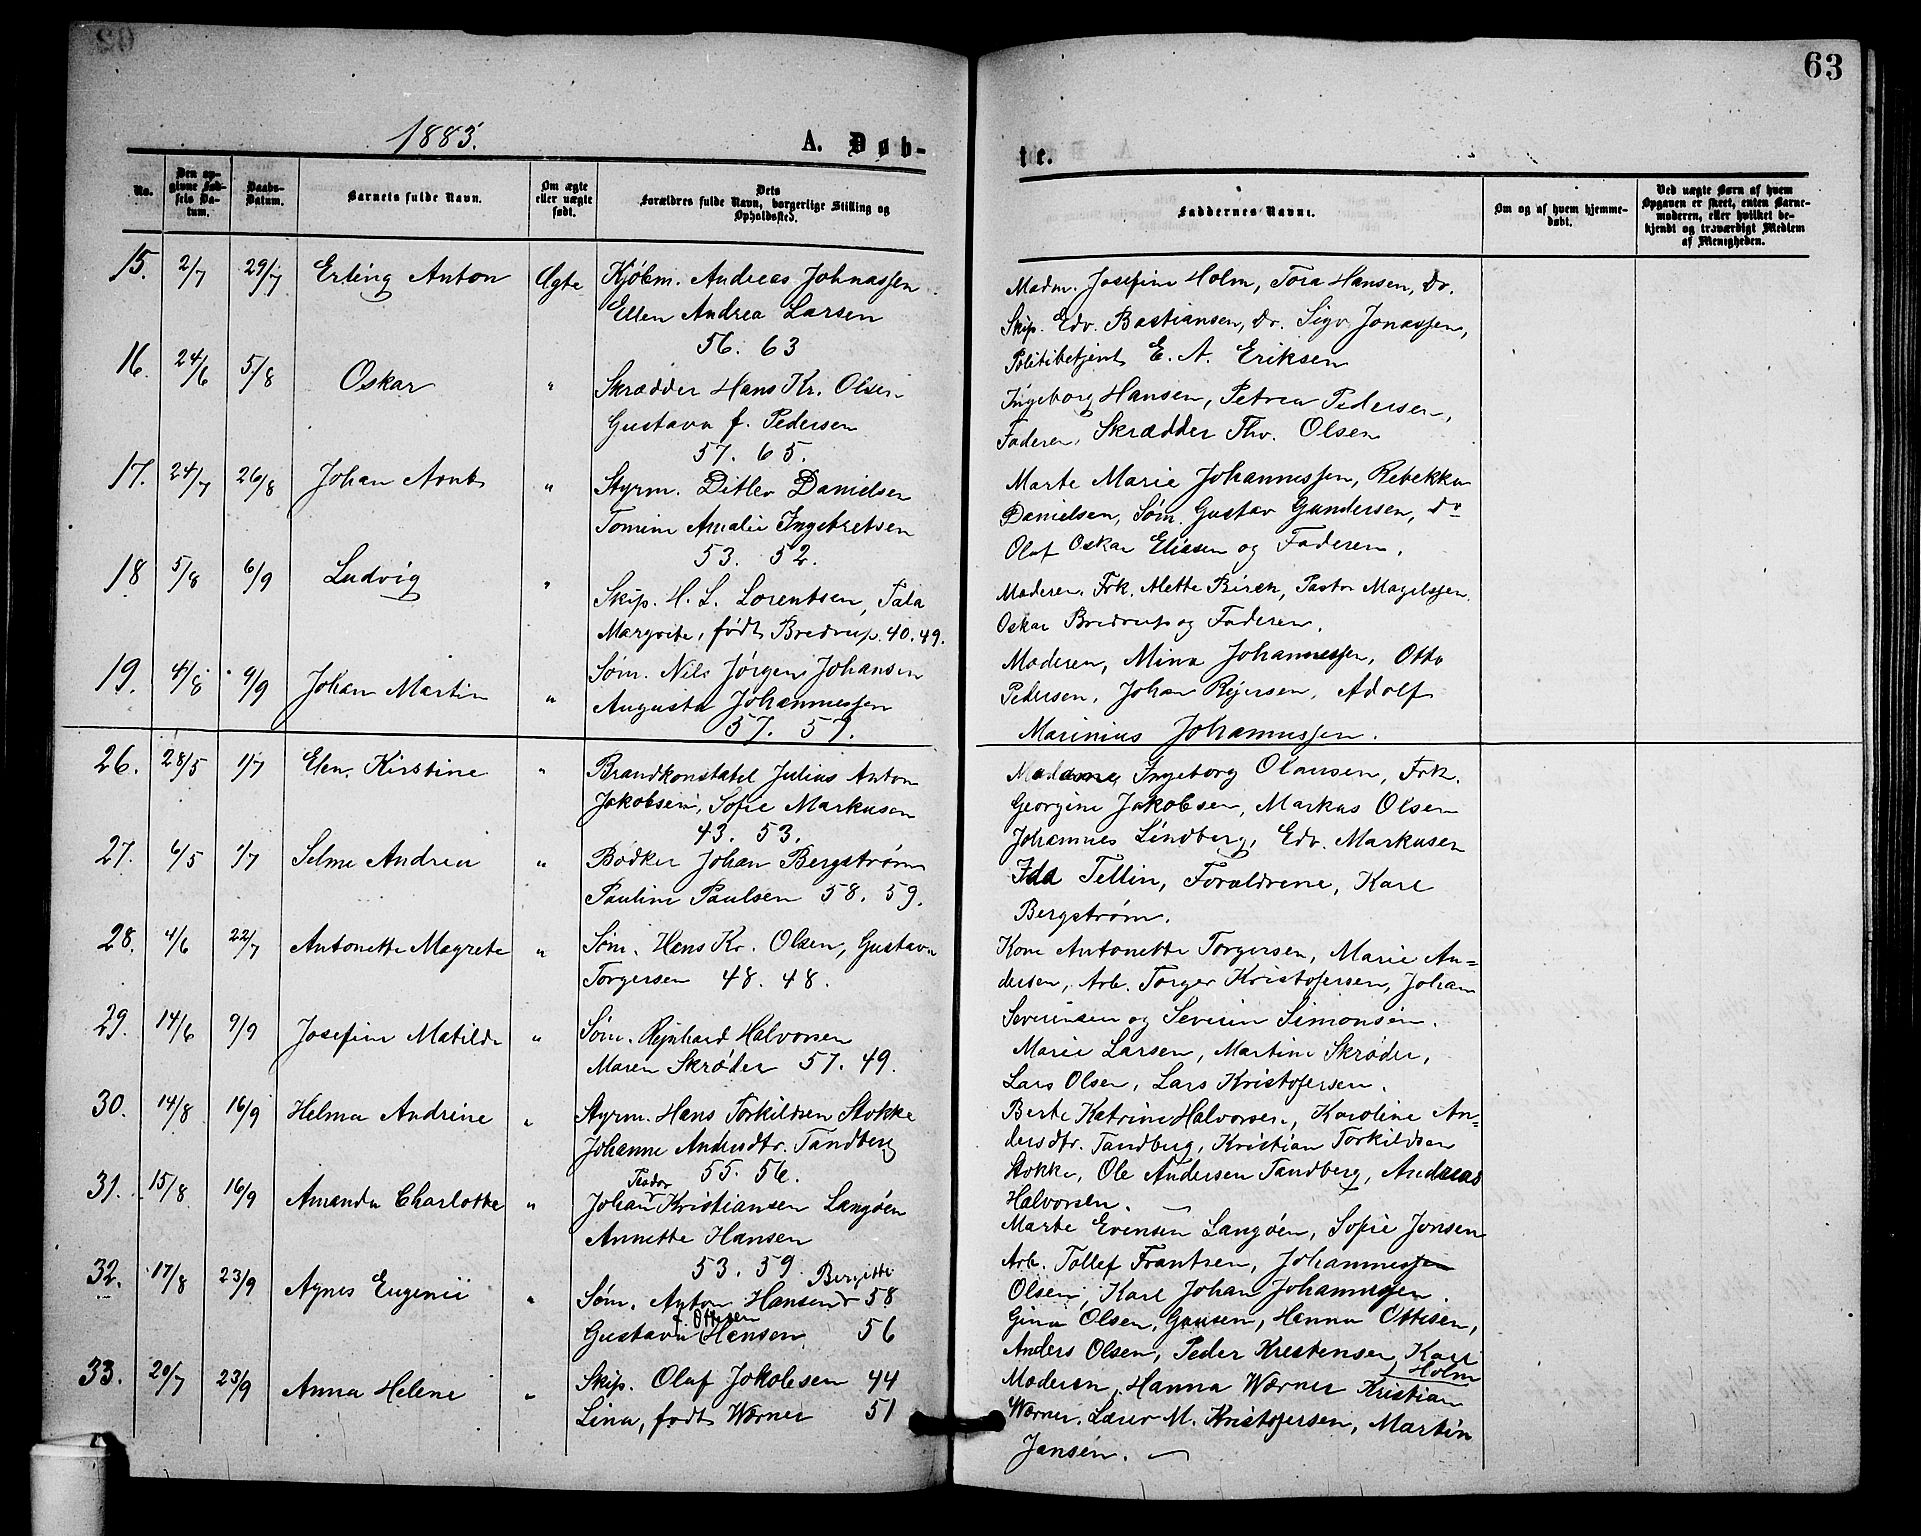 63
1883.
A. Døb-
te.
No.
Den op-
givne Fød-
sels Da-
tum.
Daabs-
Datum.
Barnets fulde Navn.
Om ægte
eller uægte
født.
Dets
Forældres fulde Navn, borgerlige Stilling og
Opholdssted.
Faddernes Navne.
Om og af hvem hjemme-
døbt.
Ved uægte Børn af hvem
Opgaven er skeet, enten Barne-
moderen, eller hvilket be-
kjendt og troværdigt Medlem
af Menigheden.
15. 2/7 29/7 Erling Anton Ægte Kjøbm. Andreas Johnassen
Ellen Andrea Larsen
56. 63
Madm. Josefine Holm, Tora Hansen, Do.
Skip. Edv. Bastiansen, Do. Sigv Jonassen,
Politibetjent E. A. Eriksen
16. 24/6 5/8 Oskar " Skrædder Hans Kr. Olsen
Gustava f. Pedersen
57. 65.
Ingeborg Hansen, Petrea Pedersen,
Faderen, Skrædder Thv. Olsen
17. 24/7 26/8 Johan Arnt " Styrm. Ditlev Danielsen
Tomine Amalie Ingebretsen
53. 52.
Marte Marie Johannessen, Rebekka
Danielsen, Søm. Gustav Gundersen, Do
Oluf Oskar Eliesen og Faderen.
18 5/8 6/9 Ludvig " Skip. H. L. Lorentsen, Tala
Margrete, født Bredrup. 40. 49.
Moderen, Frk. Alette Birch, Pastor Magelssen,
Oskar Bredrup og Faderen.
19. 4/8 9/9 Johan Martin " Søm. Nils Jørgen Johansen
Augusta Johannessen
57. 57.
Moderen, Mina Johannessen, Otto
Pedersen, Johan Rejersen, Adolf
Marinius Johannessen.
26. 28/5 1/7 Elen Kirstine " Brandkonstabel Julius Anton
Jakobsen, Sofie Markusen
43. 53.
Madame Ingeborg Olausen, Frk.
Georgine Jakobsen, Markus Olsen
Johannes Lindberg, Edv. Markusen
27. 6/5 1/7 Selma Andrea " Bødker Johan Bergstrøm
Pauline Paulsen 58. 59.
Ida Tellin, Forældrene, Karl
Bergstrøm.
28. 4/6 22/7 Antonette Magrete " Søm. Hans Kr. Olsen, Gustava
Torgersen 48. 48.
Kone Antonette Torgersen, Marie An=
dersen, Arb. Torger Kristofersen, Johan
Severinsen og Severin Simonsen.
29. 14/6 9/9 Josefine Matilde " Søm. Rejnhard Halvorsen
Maren Skrøder 57. 49.
Marie Larsen, Martine Skrøder,
Lars Olsen, Lars Kristofersen.
30. 14/8 16/9 Helma Andrine " Styrm. Hans Torkildsen Stokke
Johanne Andersdtr. Tandberg
55. 56.
Berte Katrine Halvorsen, Karoline An=
dersdtr. Tandberg, Kristian Torkildsen
Stokke, Ole Andersen Tandberg, Andreas
Halvorsen.
31. 15/8 16/9 Amanda Charlotte " Johan Teodor Kristiansen Langøen
Annette Hansen
53. 59.
Marte Evensen Langøen, Sofie Jonsen
Arb. Tollef Frantsen, Johannessen
Olsen, Karl Johan Johannessen.
32. 17/8 23/9 Agnes Eugenii " Søm. Anton Hansen Bergitte 58
Gustava f. Ottesen Hansen 56
Gina Olsen, Hanna Ottesen,
Anders Olsen, Peder Krestensen, Karl
Holm
33. 20/7 23/9 Anna Helene " Skip. Oluf Jakobsen 44
Lina, født Wærner 51
Moderen, Hanna Wærner Kristian
Wærner, Lærer M. Kristofersen, Martin
Jansen.